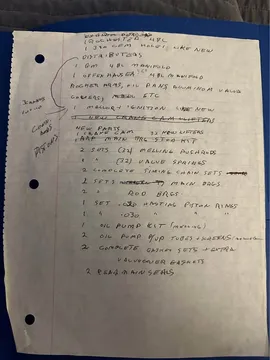 1 ROCHESTER 4BL
1 350 GEM HOLEY LIKE NEW
DISTRIBUTORS
1 GM 4BL MANIFOLD
1 OFFENHAUSER 4BL MANIFOLD
ROCKER ARMS, OIL PANS DOUR VALVE
COVERS, ETC
1 MALLORY IGNITION LIKE NEW
1 NEW CRANE CAM LIFTERS
NEW PARTS
1 CRANE CAM 32 NEW LIFTERS
ARP MAIN STUD KIT
2 SETS (32) MELLING PUSHRODS
2 " (32) VALVE SPRINGS
2 COMPLETE TIMING CHAIN SETS
2 SETS MAIN BRGS
2 " ROD BRGS
1 SET .020 HASTING PISTON RINGS
1 " .030 " " "
1 OIL PUMP KIT (MELLING)
2 OIL PUMP P/UP TUBES + SCREENS
2 COMPLETE GASKET SETS + EXTRA
VALVECOVER GASKETS
2 REAR MAIN SEALS
PISTONS